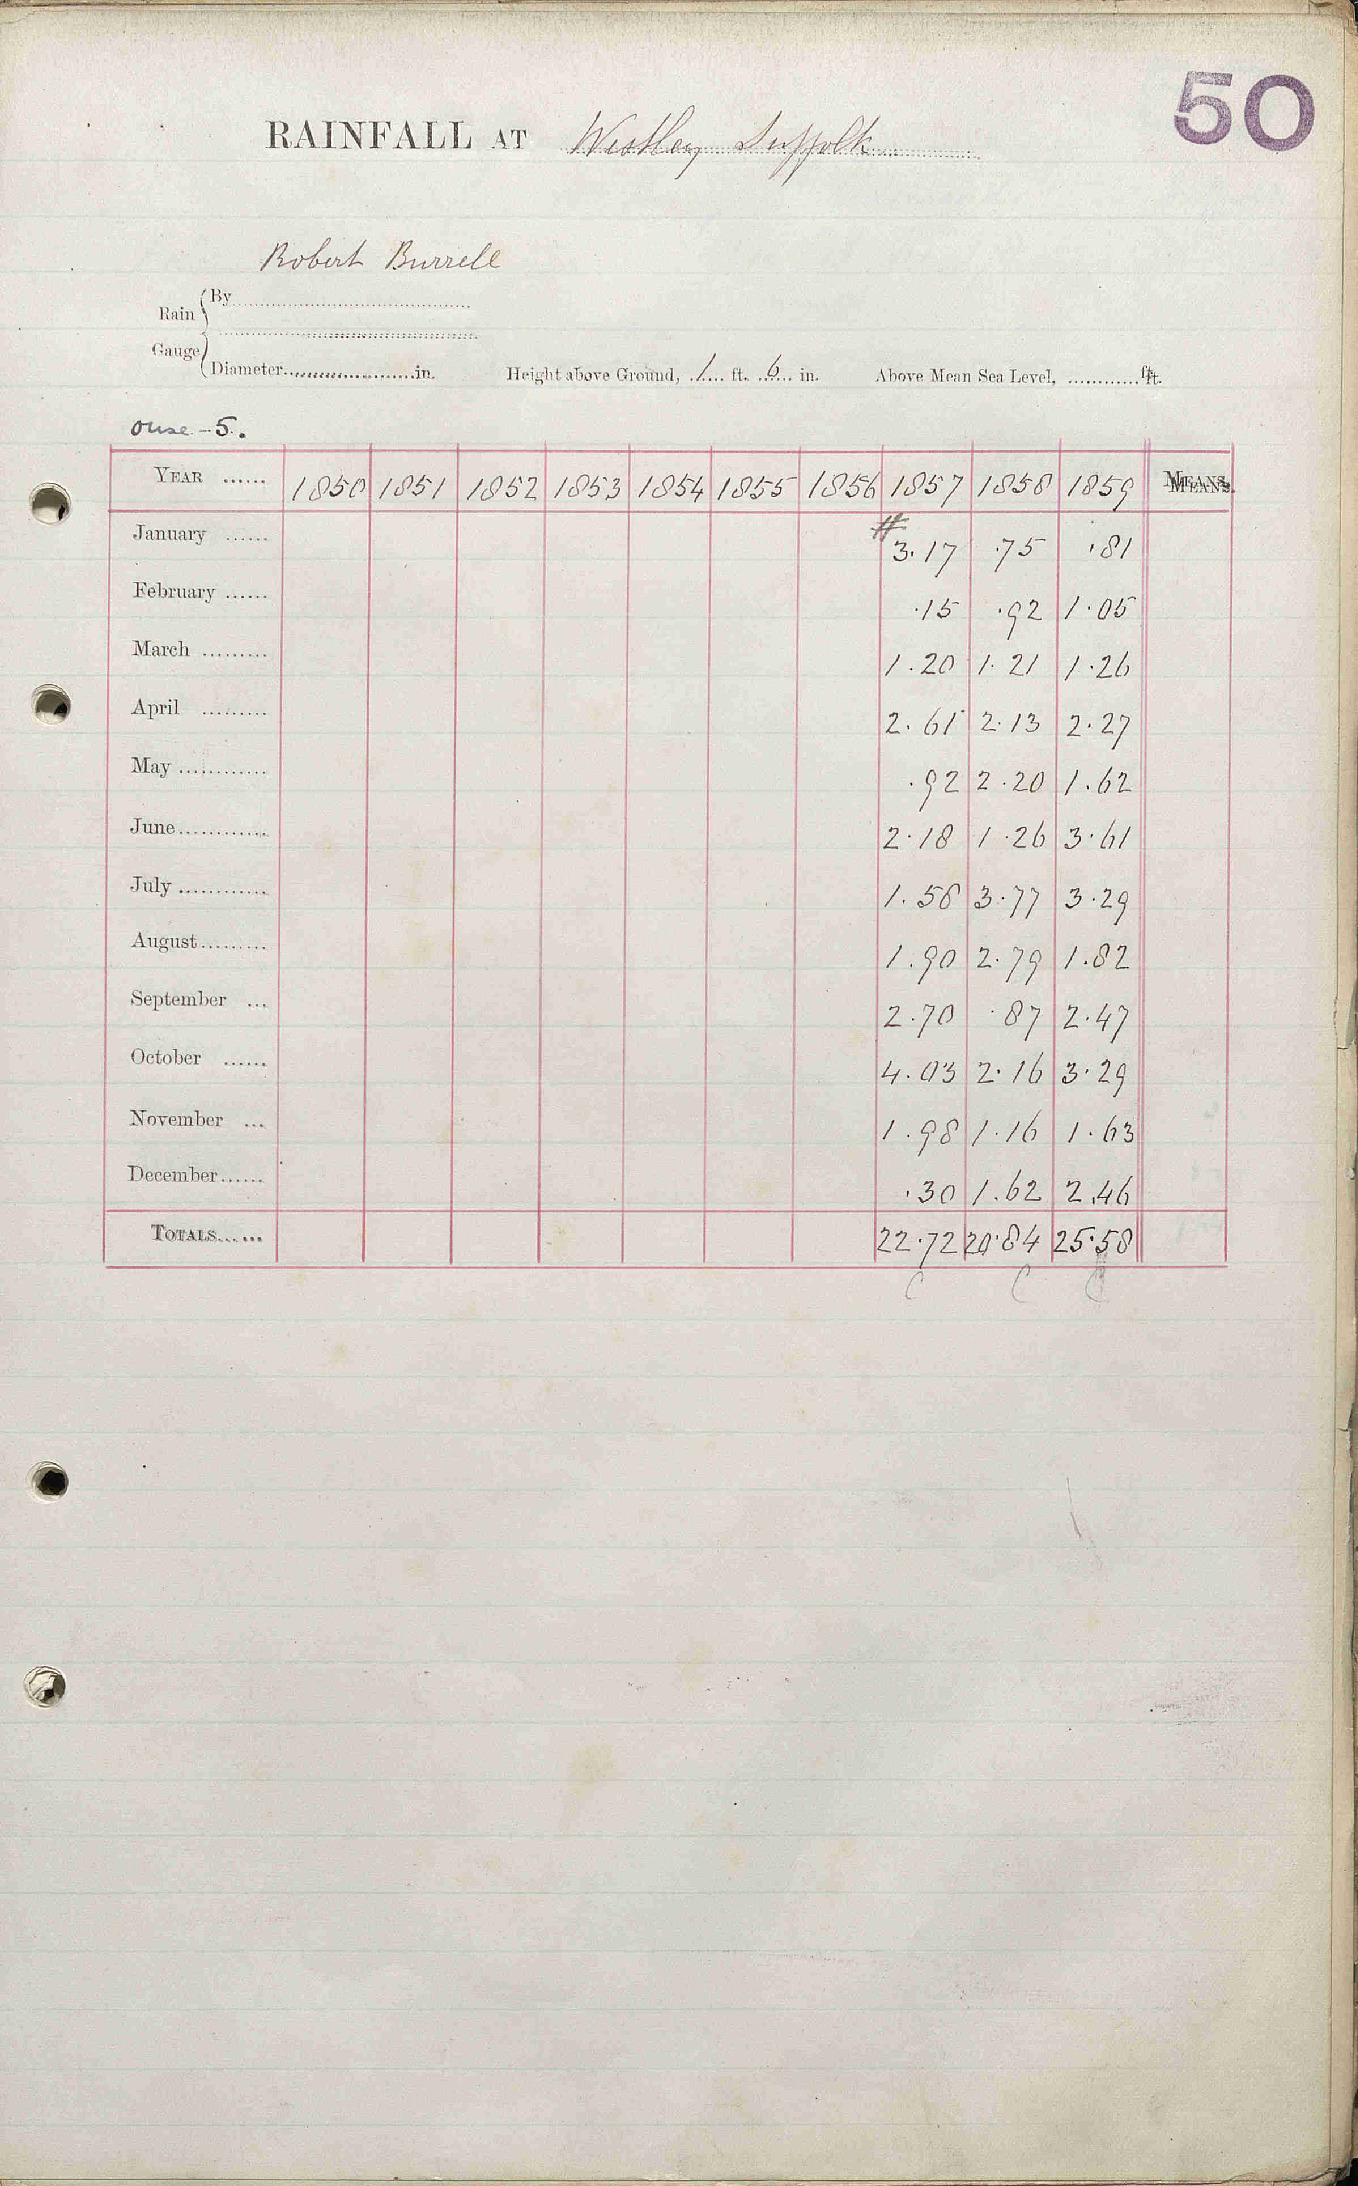 50
RAINFALL AT Westley Suffolk
Robert Burrell
Rain Gauge { By
Diameter in. Height above Ground, 1 ft. 6 in. Above Mean Sea Level, ft.
Ouse - 5.
YEAR 1850 1851 1852 1853 1854 1855 1856 1857 1858 1859 MEANS.
January # 3.17 .75 .81
February .15 .92 1.05
March 1.20 1.21 1.26
April 2.61 2.13 2.27
May .92 2.20 1.62
June 2.18 1.26 3.61
July 1.58 3.77 3.29
August 1.90 2.79 1.82
September 2.70 .87 2.47
October 4.03 2.16 3.29
November 1.98 1.16 1.63
December .30 1.62 2.46
TOTALS 22.72 20.84 25.58
C C C